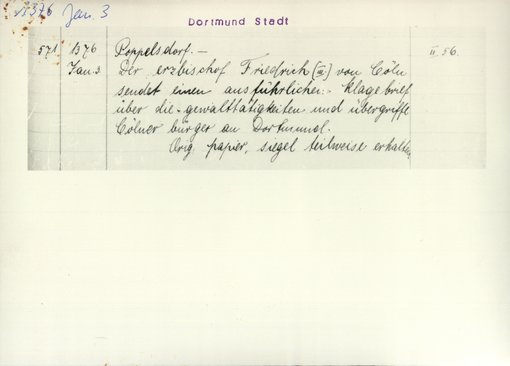 1376 Jan. 3
Dortmund Stadt
571. 1376 Poppelsdorf.— II 56.
Jan. 3. Der erzbischof Friedrich [III] von Cöln
sendet einen ausführlichen klagebrief
über die gewalttätigkeiten und übergriffe
Cölner bürger an Dortmund.
Orig. papier, siegel teilweise erhalten